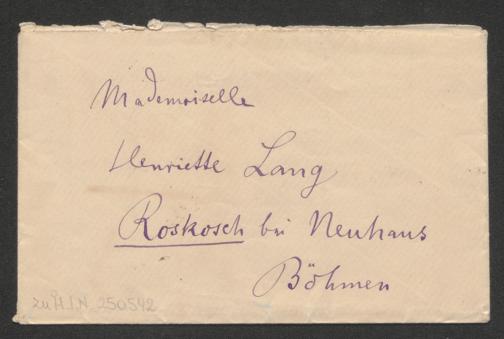 Mademoiselle
Henriette Lang
Roskosch bei Neuhaus
Böhmen
zu H.I.N. 250542